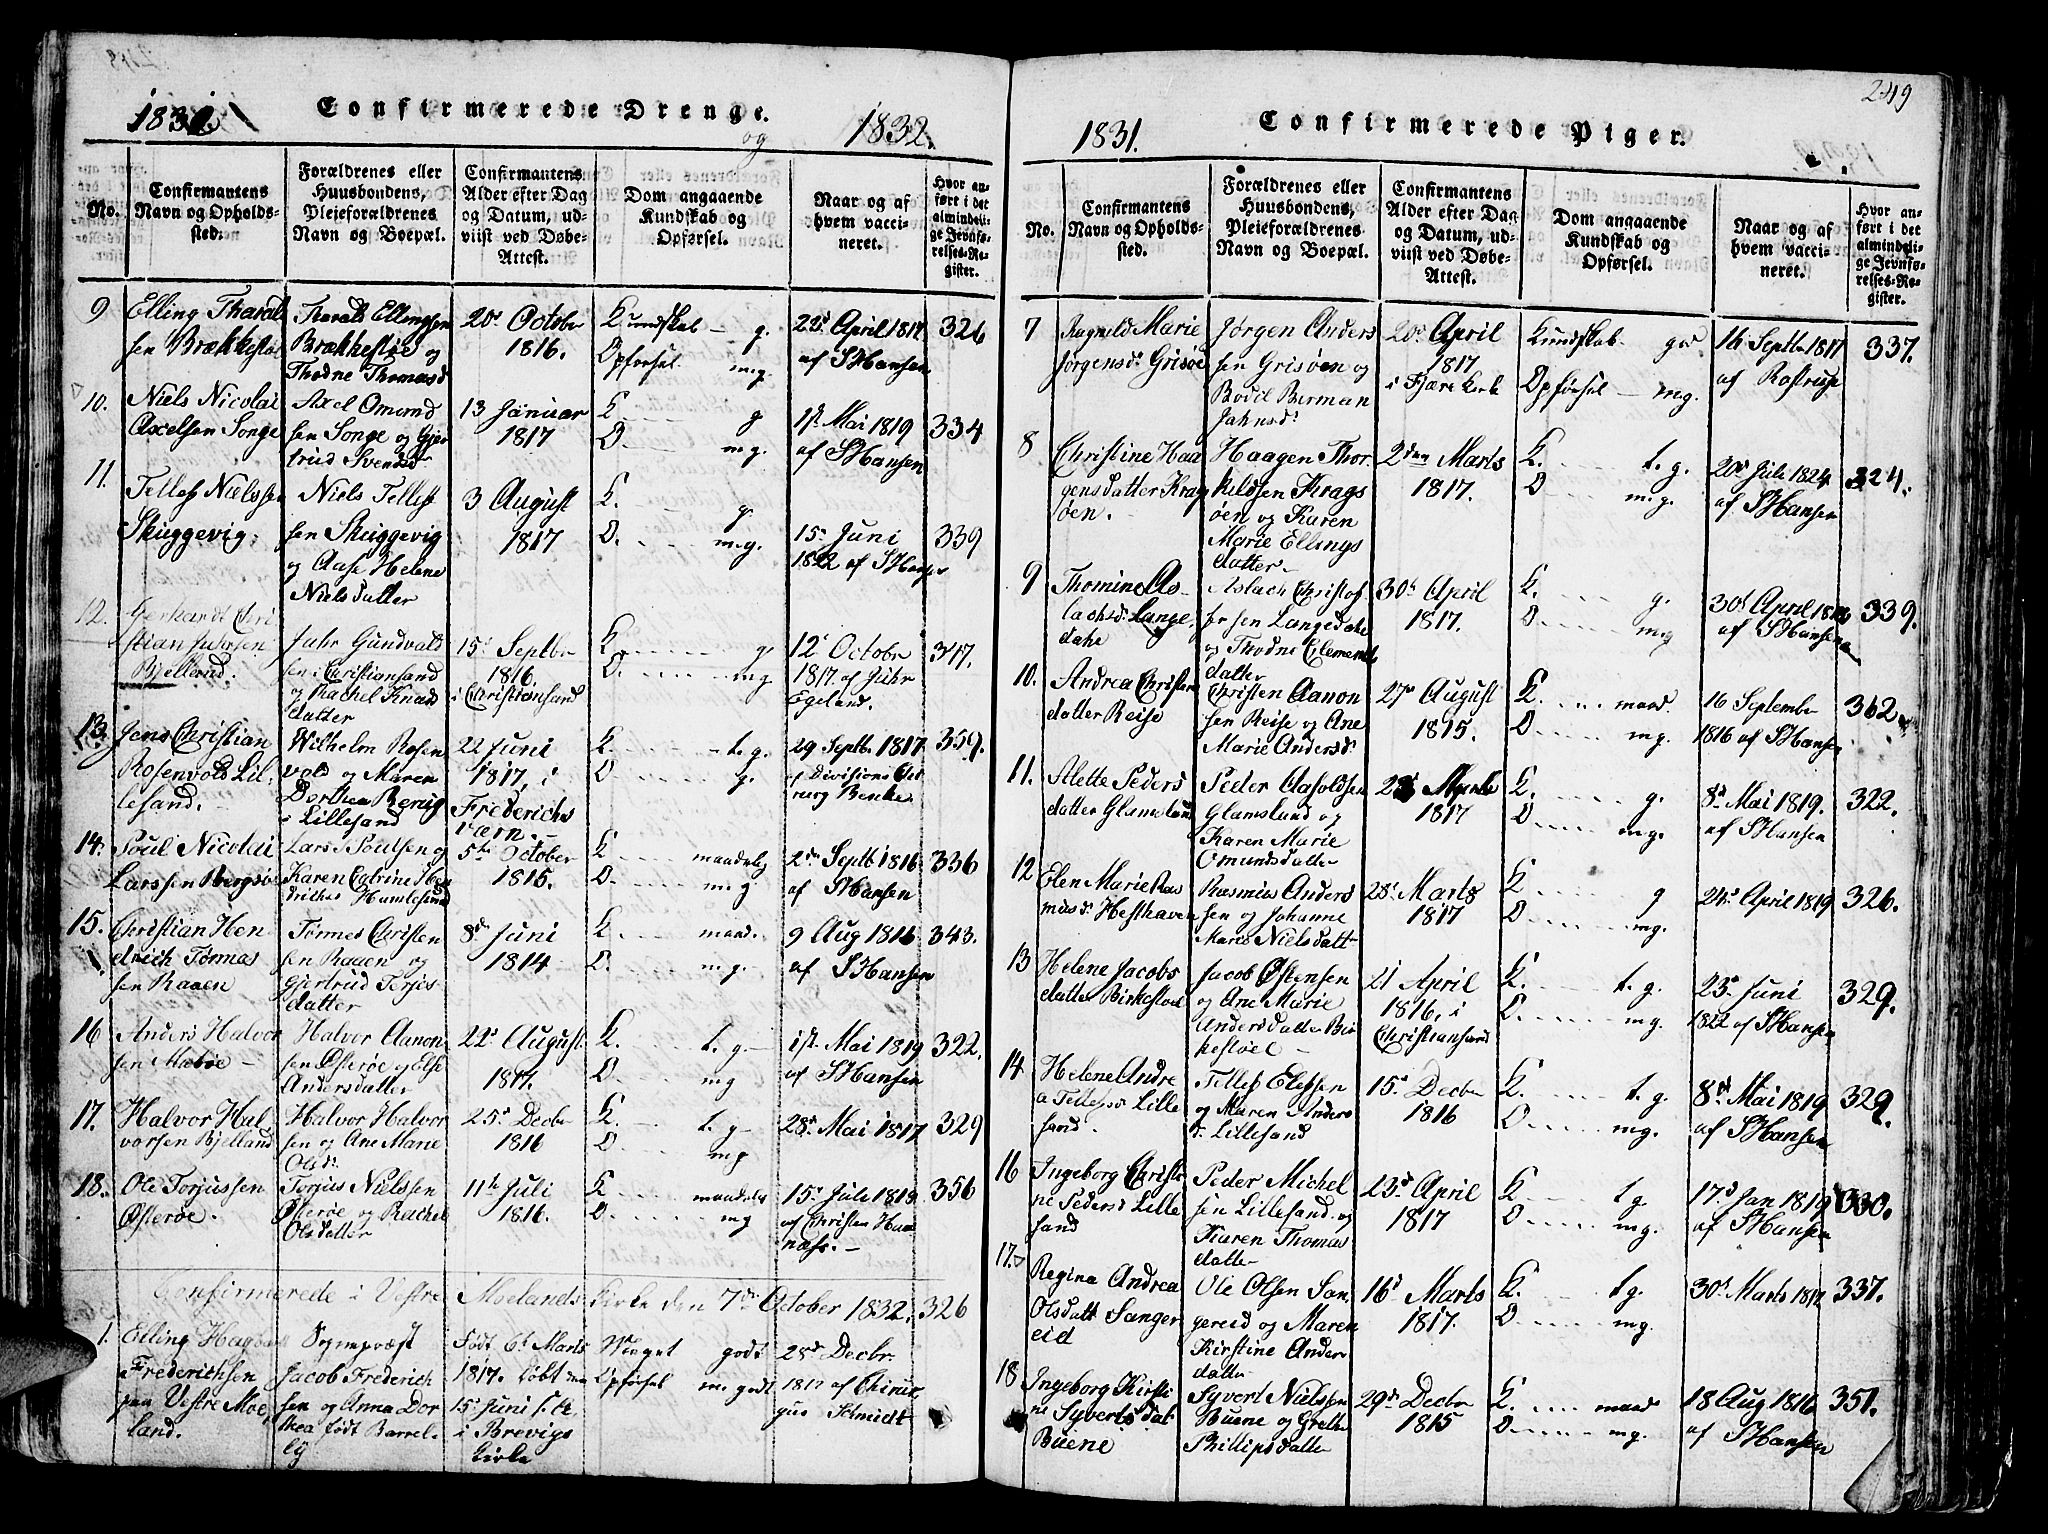 1831
Confirmerede Drenge.
og
1832.
No.
Confirmantens Navn og Opholds-sted.
Forældrenes eller Huusbondens, Plejeforældrenes Navn og Boepæl.
Confirmantens Alder efter Dag og Datum, ud-viist ved Døbe-Attest.
Dom angaaende Kundskab og Opførsel.
Naar og af hvem vacci-neret.
Hvor an-ført i det almindeli-ge Jevnfø-relses-Re-gister.
9 Elling Tharald
sen Brækkestøe
Tharald Ellingsen
Brækkestøe og
Thodne Thomasd
20d October
1816.
Kundskab – g.
Opførsel m.g.
22d April 1817
af SHansen
326
10. Niels Nicolai
Axelsen Songe
Axel Omund
sen Songe og Gjer
trud Svendsd
13 Januar
1817
K. g
O. m.g.
1st Mai 1819
af SHansen
334
11. Tellef Nielssen
Skuggevig.
Niels Tellef
sen Skuggevig
og Aase Helene
Nielsdatter
3 August
1817
K. g.
O. m.g.
15d Juni
1822 af SHansen
339
12. Gerhardt Chri
stian Juhrsen
Bjellerud.
Juhr Gundvald
sen i Christiansand
og Rachel Knud
datter
15d Septbr
1816.
i Christiansand
K. g
O. mg
12t October
1817 af Juhr
Egeland.
347.
13. Jens Christian
Rosenvold Lil
lesand.
Wilhelm Rosen
vold og Maren
Dorthea
i Lillesand
22 Juni
1817, i
Frederichs
værn.
K. t. g.
O. g.
29 Septbr 1817
af Divisions Chi
rurg Benke
359.
14. Poul Nicolai
Larssen Bergsøe
Lars Poulsen og
Karen Catrine Hen
drichsd Humlesund
5te October
1815.
K. maadelig
O. m.g
2den Septb 1816
af SHansen
336
15. Christian Hen
drich Tørmas
sen Raaen
Tørmes Christen
sen Raaen og
Gjertrud Terjes
datter
8de Juni
1814
K. maad.
O. m.g.
9 Aug 1816
af SHansen
343.
16 Anders Halvor
sen
Halvor Aanon
sen Østerøe og Else
Andersdatter
22d August
1817.
K. t. g.
O. mg
1st Mai 1819
af SHansen
322.
17. Halvor Hal
vorsen Bjelland
Halvor Halvor
sen og Ane Marie
Olsd.
25d Decbr
1816
K. t. g
O. mg
28d Mai 1817
329
18. Ole Torjussen
Østerøe.
Torjus Nielssen
Østerøe og Rachel
Olsdatter
11te Juli
1816.
K maadelig
O. mg
15d Julie 1818
af Christen Hum
næss.
356
Confirmerede i Vestre Moelands Kirke den 7de October 1832.
326
1. Elling Hagb
Frederichsen
paa Vestre Moe
land.
Sognepræst
Jacob Frederich
sen og Anna Dor
thea født Barrel
Født 6t Marts
1817. døbt den
15 Juni s.A.
i Brevigs
Kirke
Meget godt
Opførsel m. godt
28d Decbr.
1817 af Chirur
gus Schmidt
249
1831.
Confirmerede Piger.
No.
Confirmantens Navn og Opholds-sted.
Forældrenes eller Huusbondens, Pleieforældrenes Navn og Boepæl.
Confirmantens Alder efter Dag og Datum, ud-viist ved Døbe-Attest.
Dom angaaende Kundskab og Opførsel.
Naar og af hvem vacci-neret.
Hvor an-ført i det almindeli-ge Jevnfø-relses-Re-gister.
7 Ragnild Marie
Jørgensd. Grisøe
Jørgen Anders
sen Grisøen og
Bodil Birman
Jahnsd.
20d April
1817
i Fjære Kirke
Kundskab – g
Opførsel – m.g.
16 Septbr 1817
af Rostrup
337.
8 Christine Haa
gensdatter Krag
øen.
Haagen Thor
kildsen Krags
øen og Karen
Marie Ellings
datter
2den Marts
1817.
K. t. g.
O m.g.
20d Jule 1824
af SHansen
324.
9 Thomine As
lachsd. Lange
dahe
Aslach Christof
fersen Langedahe
og Thodne Clements
datter
30d April
1817.
K. g.
O. m.g
30d April 18
af SHansen
339.
10. Andrea Christens
datter Reise
Christen Aanon
sen Reise og Ane
Marie Andersd.
27d August
1815.
K. maad.
O mg.
16 September
1816 af SHansen
362
11. Alette Peders
datter Glamsland
Peder Aasoldsen
Glamslund og
Karen Marie
Omundsdatter
1817
K. g.
O m.g.
8d Mai 1819.
af SHansen
322.
12 Elen Marie Ras
musd. Hesthaven
Rasmus Anders
sen og Johanne
Marie Nielsdatt
28d Marts
1817
K g
O m.g.
24d April 1819
326.
13 Helene Jacobs
datter Birkestoel
Jacob Østensen
og Ane Marie
Andersdatter Bir
kestoel
21 April
1816, i
Christiansand
K. t. g.
O. mg.
23d Juni
1822 af SHansen
329.
14 Helene Andre
a Tellefsd. Lille
sand.
Tellef Elefsen
og Maren Anders
d. Lillesand
15d Decbr
1816
K. t. g.
O mg.
8d Mai 1819
af SHansen
329.
16 Ingeborg Christi
ne Pedersd Lille
sand
Peder Michel
sen Lillesand og
Karen Thomas
datter
23d April
1817
K. t g.
O mg.
17d Jan 1819
af SHansen
330.
17. Regina Andrea
Olsdatt Sanger
eid
Ole Olsen San
gereid og Maren
Kirstine Ander
datter
16d Marts
1817.
K. t g.
O mg.
30d Marts 181
337.
18 Ingeborg Kirsti
ne Syvertsdat
Buene
Syvert Nielssen
Buene og Grethe
Phillipsdatter
29d Decbr
1815
K. maad
O mg.
18 Aug 1816
af SHansen
351.